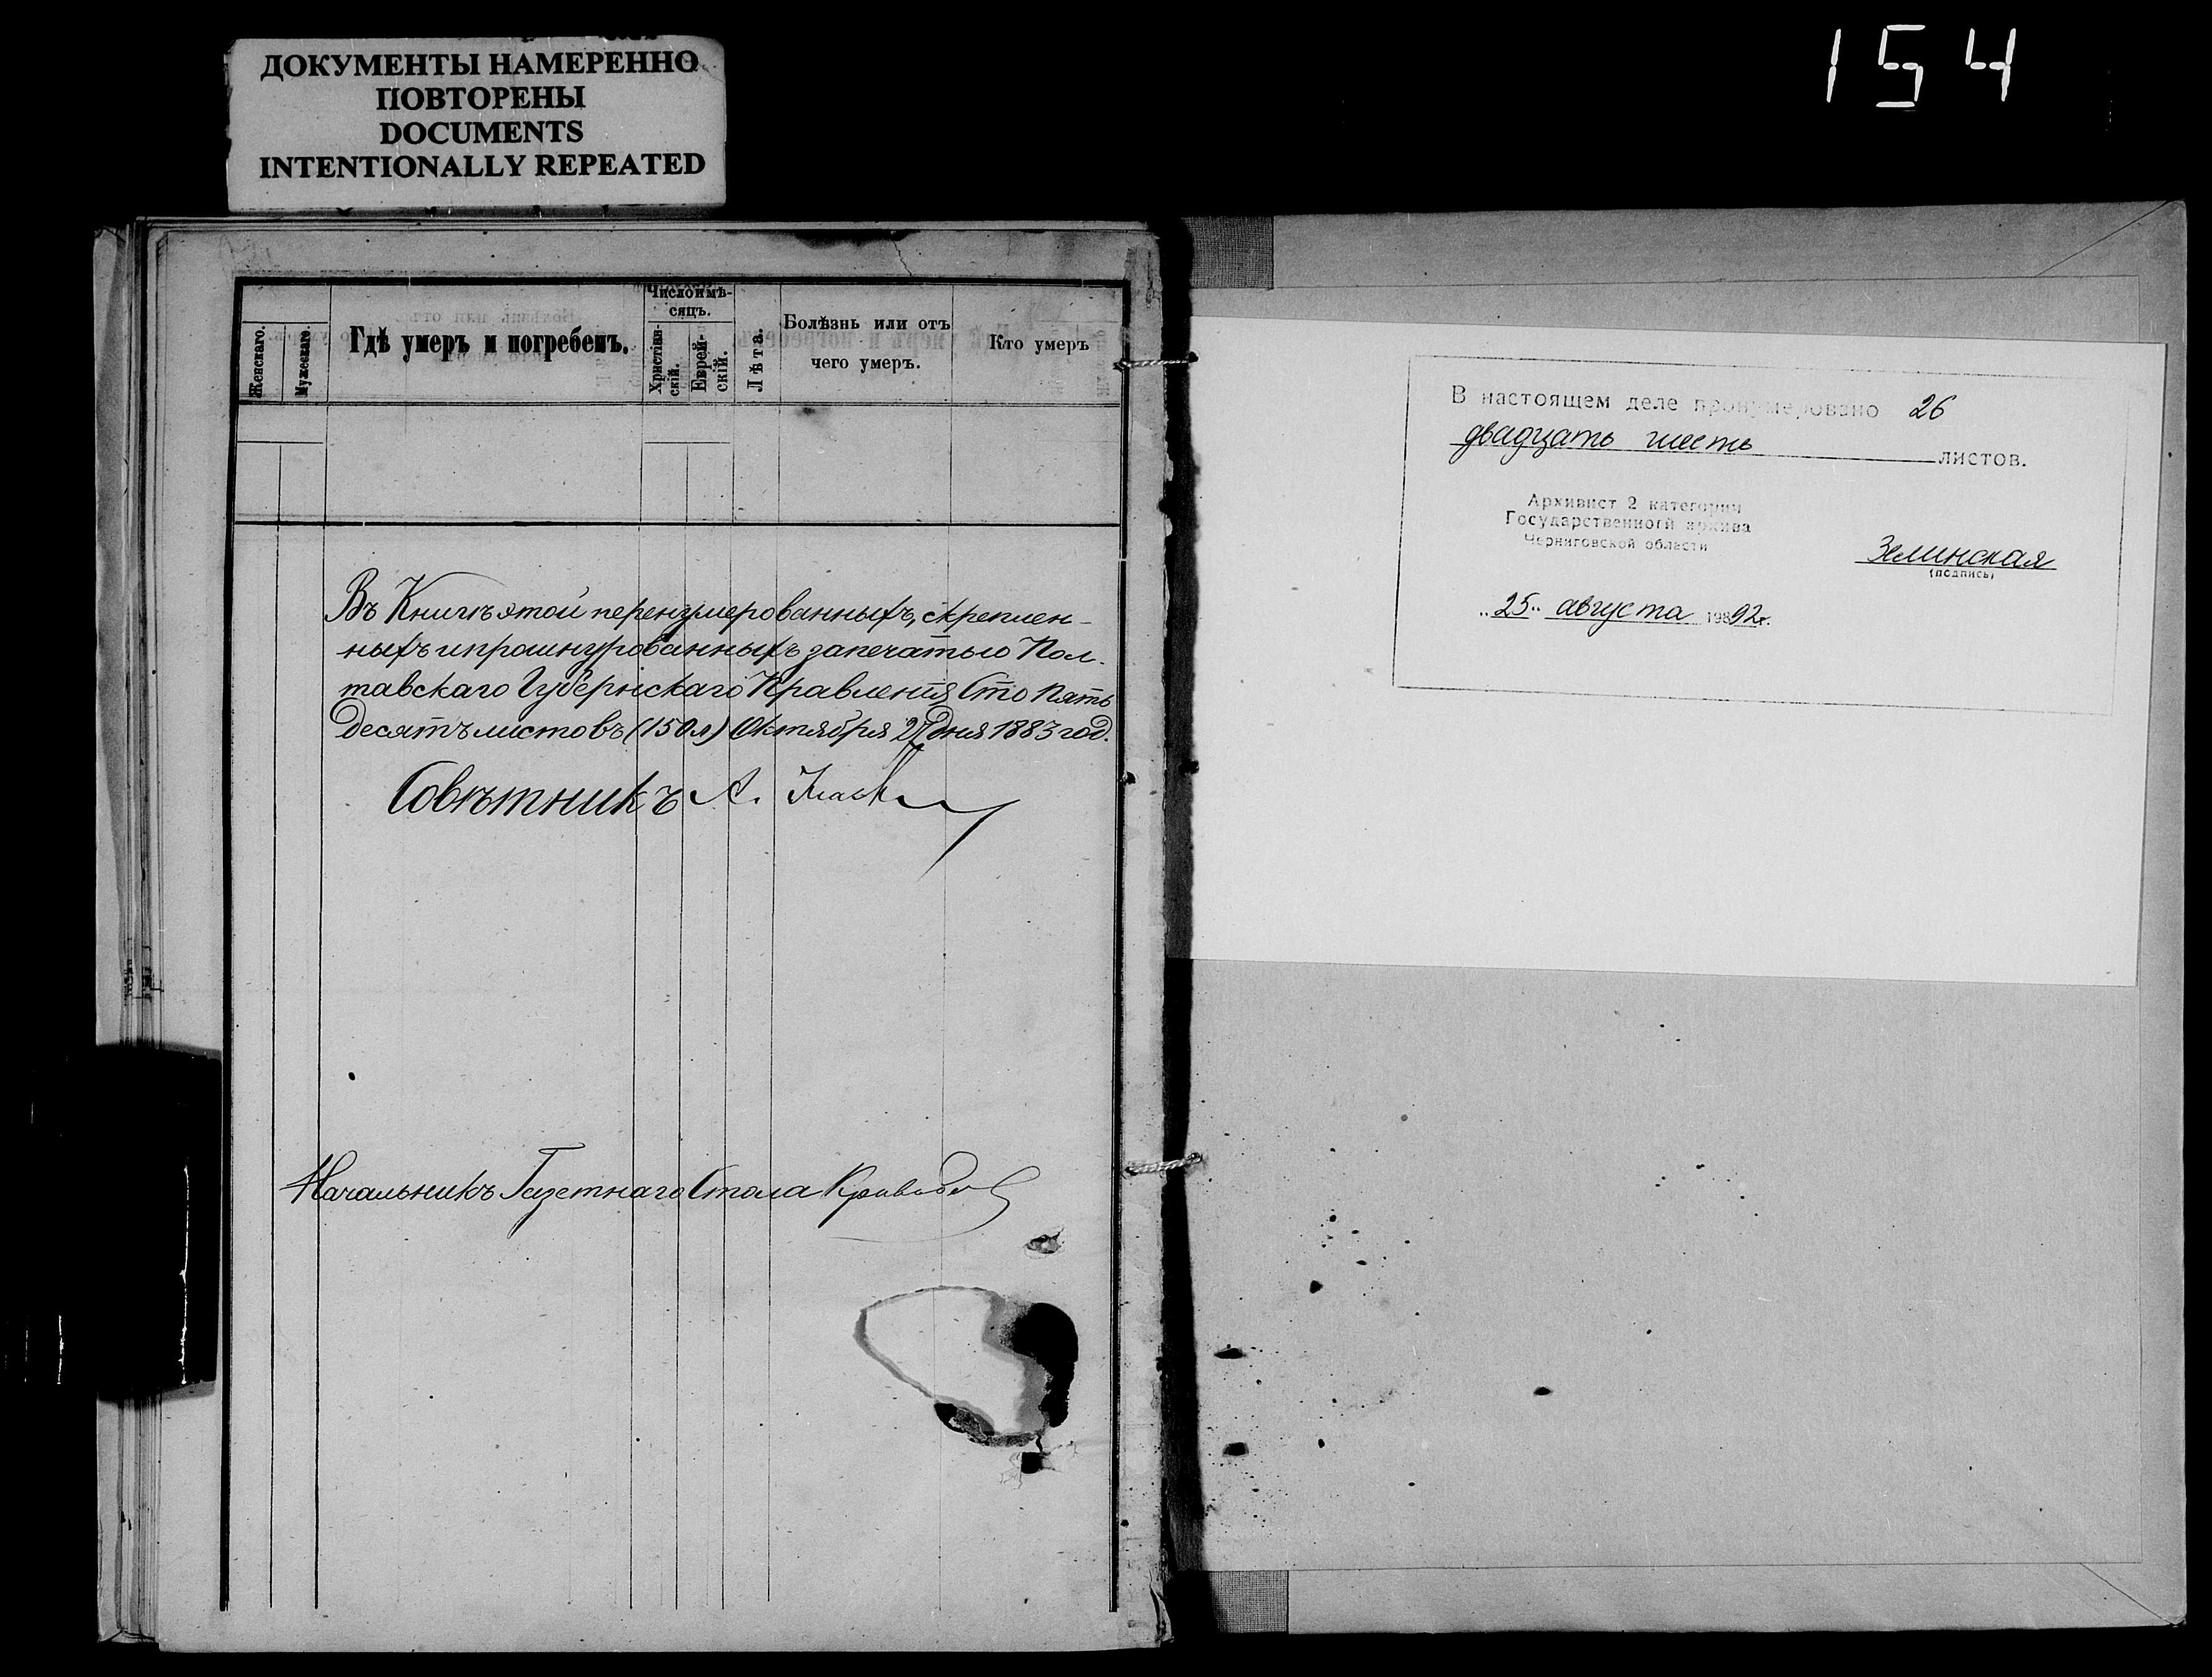 154
ДОКУМЕНТЫ НАМЕРЕННО
ПОВТОРЕНЫ
DOCUMENTS
INTENTIONALLY REPEATED
Женскаго.
Мужескаго.
Гдѣ умеръ и погребенъ.
Число и мѣ-
сяцъ.
Христіан-
скій.
Еврей-
скій.
Лѣта.
Болѣзнь или отъ
чего умеръ.
Кто умеръ
Въ Книгѣ этой перенумерованныхъ, скреплен-
ныхъ и прошнурованныхъ за печатью Пол-
тавскаго Губернскаго Правленія Сто пять
десятъ листовъ (150 л) Октября 27 дня 1883 год.
Совѣтникъ А.
Начальникъ Газетнаго Стола
В настоящем деле пронумеровано 26
двадцать шесть листов.
Архивист 2 категории
Государственного архива
Черниговской области
Зелинская
(подпись)
"25" августа 19892г.